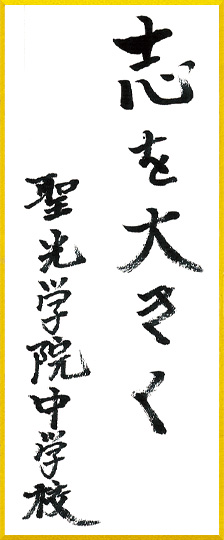 志を大きく
聖光学院中学校